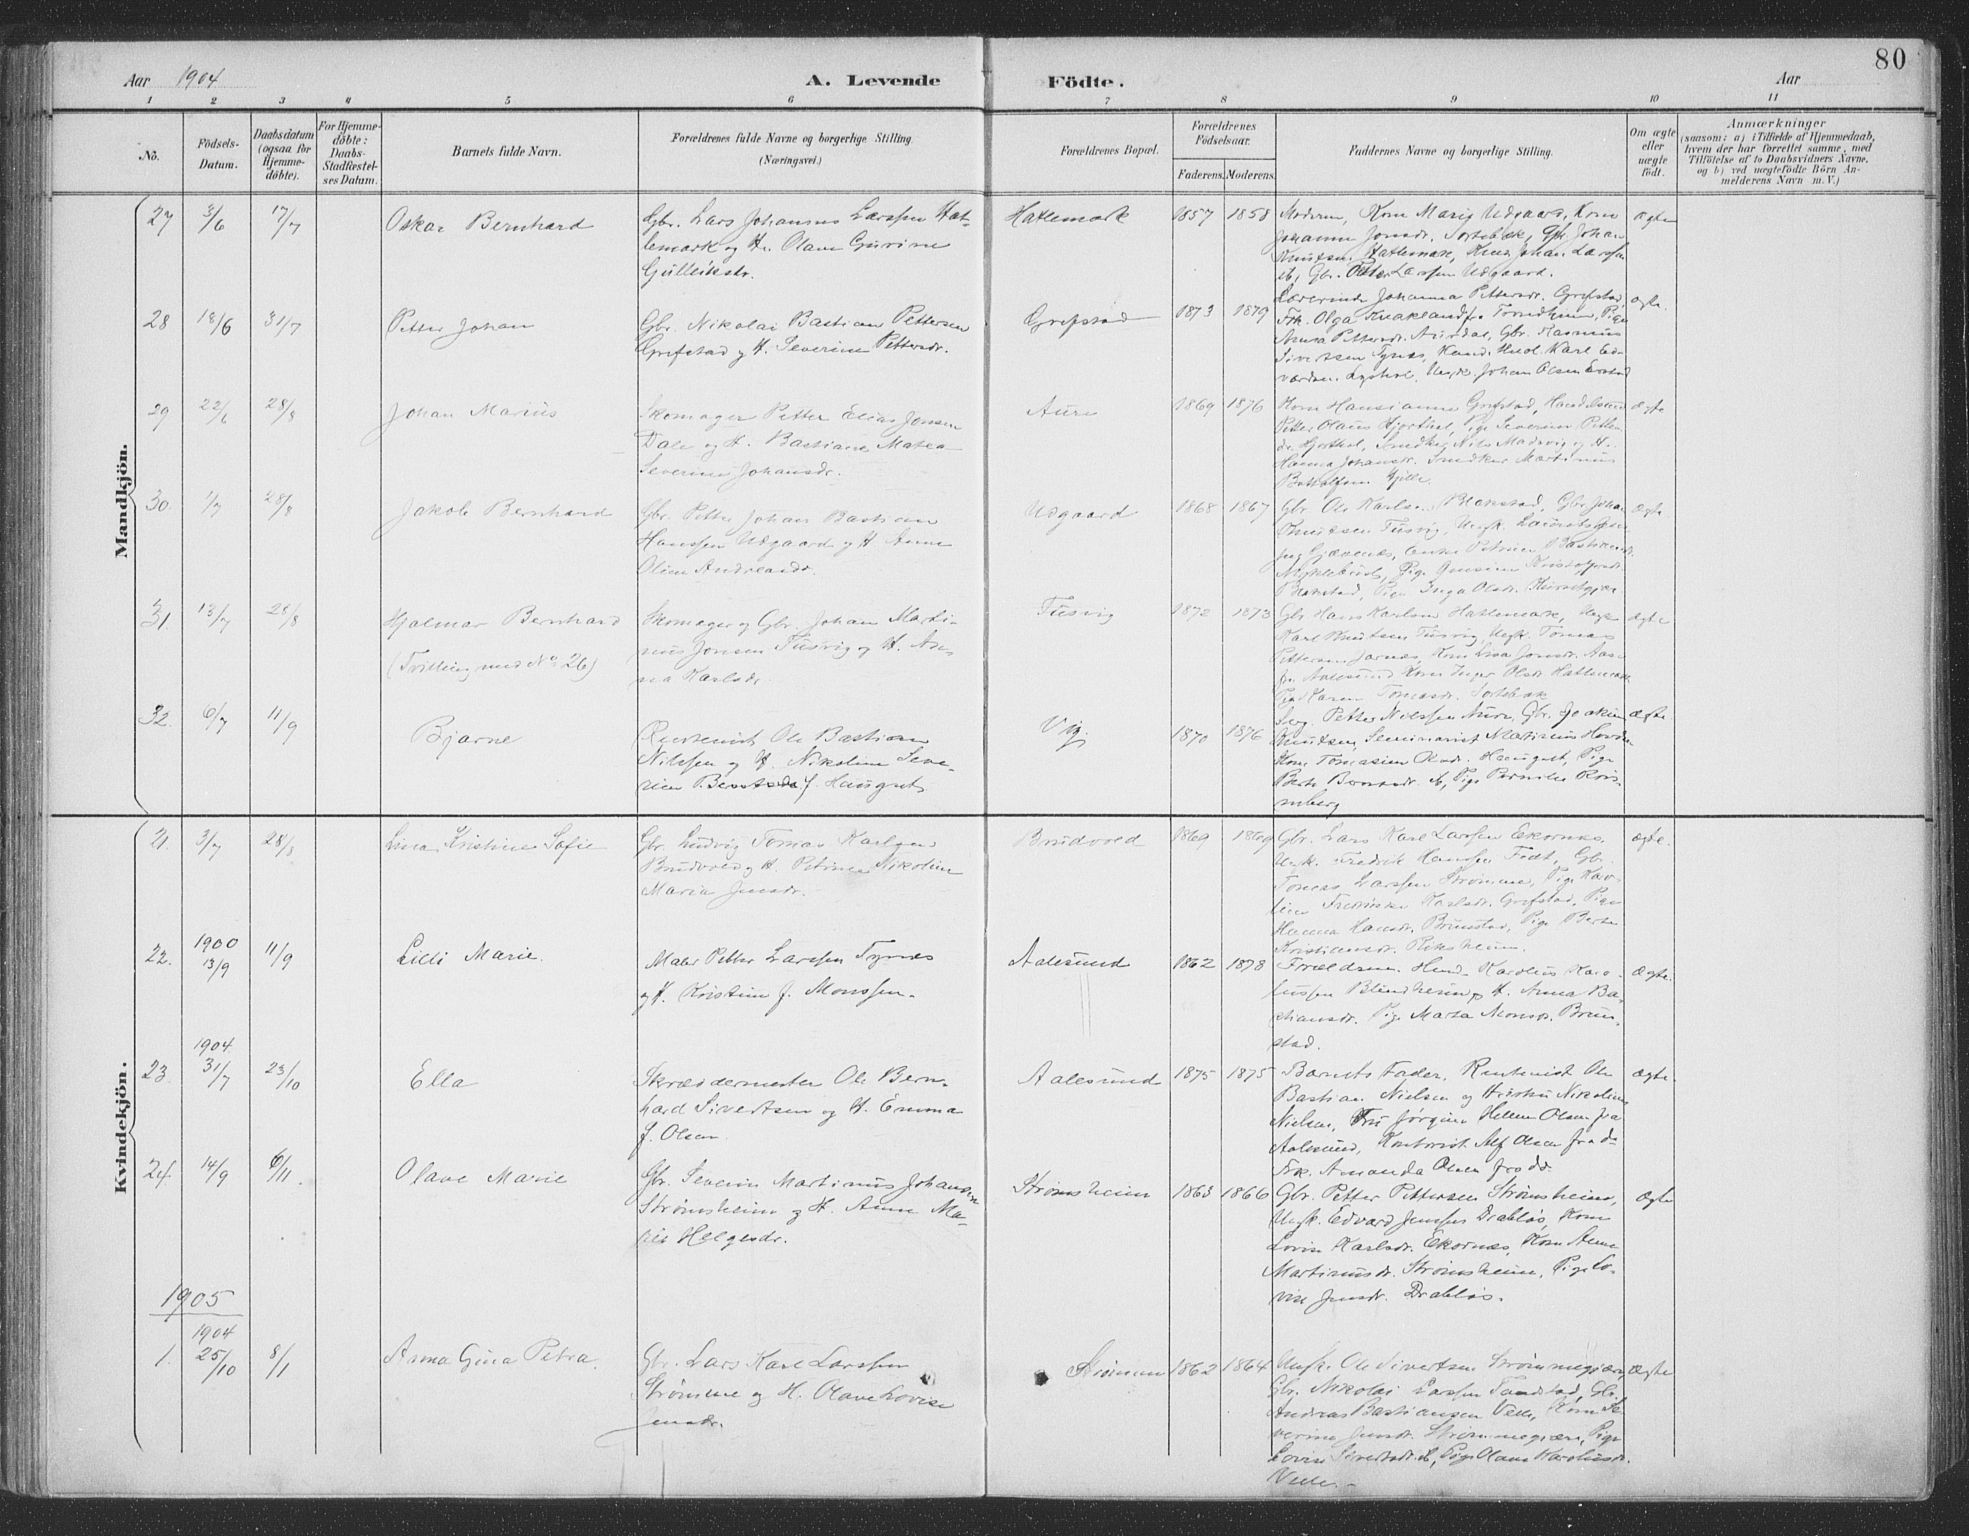 80
Aar 1904
A. Levende
Födte.
Aar
1 2 3 4 5 6 7 8 9 10 11
No.
Födsels-
Datum.
Daabsdatum
(ogsaa for
Hjemme-
döbte).
For Hjemme-
döbte:
Daabs-
Stadfæstel-
ses Datum.
Barnets fulde Navn.
Forældrenes fulde Navne og borgerlige Stilling.
(Næringsvei.)
Forældrenes Bopæl.
Forældrenes
Födselsaar.
Faderens. Moderens.
Faddernes Navne og borgerlige Stilling.
Om ægte
eller
uægte
födt.
Anmærkninger
(saasom: a) i Tilfælde af Hjemmedaab,
hvem der har forrettet samme, med
Tilföielse af to Daabsvidners Navne,
og b) ved uægtefödte Börn An-
melderens Navn m. V.)
Mandkjön.
27 3/6 17/7
Oskar Bernhard
Gbr. Lars Johannes Larssen Hat-
lemark og H. Olave Gurine
Gulleiksdr.
Hatlemark
1857 1858
Moderen, Kone Marie Udgaard, Kone
Johanne Jonsdr. Sortebæk, Gbr. Johan
Knutsen Hatlemark, Johan Larssen
Gbr. Petter Larssen Udgaard.
ægte
28 18/6 31/7
Petter Johan
Gbr. Nikolai Bastian Pettersen
Grefstad og H. Severine Pettersdr.
Grefstad
1873 1879
Lærerinde Johanna Pettersdr. Grefstad,
Frk. Olga Haakland fr. Trondhjem, Pige
Anna Pettersdr. Aursdal, Gbr. Rasmus
Sivertsen Tynes, Karl Ed-
vardsen Lyshol, Ungk. Johan Olsen
ægte.
29 22/6 28/8
Johan Marius
Skomager Petter Elias Jonsen
Dale og H. Bastiane Matea
Severine Johansdr.
Aure
1869 1876
Kone Hansianna Grefstad,
Petter Olaus Hjorthol, Pige Severine Petter-
dr. Hjorthol, Nils Madsvig og H.
Hanna Johansdr. Martinus
Gjille
ægte
30. 1/7 28/8
Jakob Bernhard
Gbr. Petter Johan Bastian
Hanssen Udgaard og H. Anne
Oline Andreasdr.
Udgaard
1868 1867
Gbr. Ole Karlsen Blakstad, Gbr. Johan
Knutsen Tusvig, Ungk. Laurits
Gjævenes, Enke Petrine Bastiansdr.
Myklebust, Pige Gunine Kristoffersdr.
Blakstad, Pige Inga Olsdr.
ægte
31. 13/7 28/8
Hjalmar Bernhard
(Tvilling med No 26)
Skomager og Gbr. Johan Marti-
nus Jonsen Tusvig og H. An-
na Karlsdr.
Tusvig
1872 1873
Gbr. Hans Karlsen Hatlemark, Ungk.
Karl Knutsen Tusvig, Ungk. Tomas
Pettersen Jarnes, Kone Lina Jonsdr. Aas-
fr. Aalesund Kone Inger Olsdr. Hatlemark
Pige Karen Tomasdr. Sortebæk
ægte
32. 6/7 11/9
Bjarne
Ole Bastian
Nilssen og H. Nikoline Seve-
rine Berntsdr. f. Haugset
Vig.
1870 1876
Petter Nilssen Aure, Gbr. Joakim
Knutsen, Seminarist Martinus
Kone Tomasine Olsdr. Haugset, Pige
Berte Berntsdr. Pige Pernille
ægte
Kvindekjön.
21. 3/7 28/8
Lina Kristine Sofie
Gbr. Ludvig Tomas Karlsen
Brudvold og H. Petrine Nikoline
Maria Jensdr.
Brudvold
1869 1869
Gbr. Lars Karl Larssen Ekornes,
Ungk. Fredrik Hanssen Fedt, Gbr.
Tomas Larssen Strømme, Pige Karo-
line Fredrikke Karlsdr. Grefstad, Pige
Hanna Hansdr. Brunstad, Pige Berte
Kristiansdr. Riksheim.
ægte.
22. 1900 13/9 11/9
Lilli Marie.
Maler Petter Larssen Tynes
og H. Kristine f. Monssen.
Aalesund
1862 1878
Forældrene, Karolius Karo-
liussen Blindheim og H. Anna Ba-
stiansdr. Pige Marta Monsdr. Brun-
stad.
ægte.
23. 1904. 31/7 23/10
Ella
Skræddermester Ole Bern-
hard Sivertsen og H. Emma
f. Olsen
Aalesund
1875 1875
Barnets Fader, Ole
Bastian Nielsen og Hustru Nikoline
Nielsen, Fru Jørgine Hellen Olsen fra
Aalesund, Kontorist Alf Olsen fra do
Frk. Amanda Olsen fra do.
ægte.
24. 14/9 6/11.
Olave Marie
Gbr. Severin Martinus Johansen
Strømsheim og H. Anne Ma-
rie Helgesdr.
Strømsheim
1863 1866
Gbr. Petter Pettersen Strømsheim,
Ungk. Edvard Jenssen Drabløs, Kone
Lovise Karlsdr. Ekornes, Kone Anne
Martinusdr. Strømsheim, Pige Lo-
vise Jensdr. Drabløs.
ægte
1905
1. 1904 25/10 8/1
Anna Gina Petra.
Gbr. Lars Karl Larssen
Strømme og H. Olave Lovise
Jensdr.
Strømme
1862 1864
Ungk. Ole Sivertsen Strømmegjære,
Gbr. Nikolai Larssen Tandstad, Gbr.
Andreas Bastiansen Velle, Kone Se-
verine Jensdr. Strømmegjære, Pige
Lovise Sivertsdr. Pige Olave Karolusdr.
Velle.
ægte